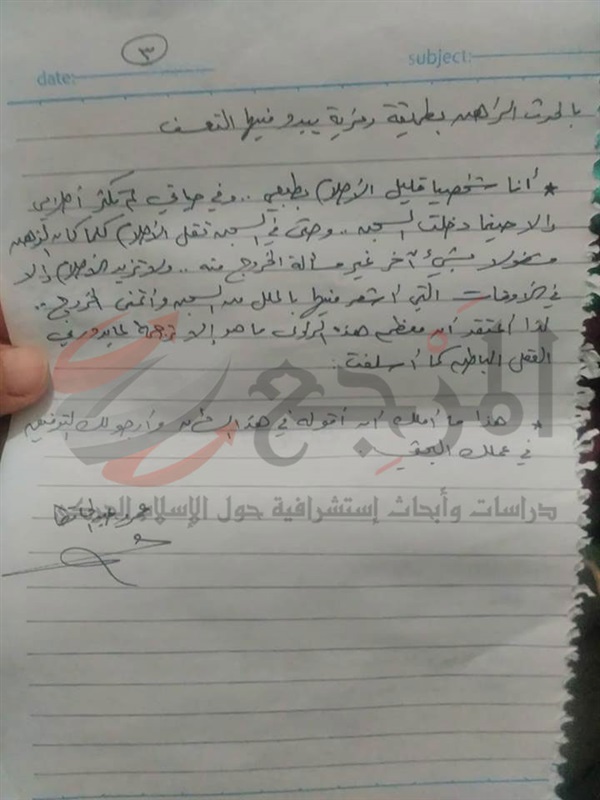 ٣
date:
subject:
بالحدث الراهن بطريقة رمزية يبدو فيها التعسف
* أنا شخصيا قليل الأحلام بطبعي .. وفي حياتي لم تكثر أحلامي
إلا حينما دخلت السجن .. وحتى في السجن تقل الأحلام كلما كان الذهن
مشغولا بشيء آخر غير مسألة الخروج منه .. ولا تزيد الأحلام إلا
في الأوقات التي أشعر فيها بالملل من السجن وأتمنى الخروج ..
لذا أعتقد أن معظم هذه الرؤى ما هو إلا ترجمة لما يدور في
العقل الباطن كما أسلفت .
* هذا ما أملك أن أقوله في هذا الشأن وأرجو لك التوفيق
في عملك البحثي .
المرجع
دراسات وأبحاث إستشرافية حول الإسلام
عمرو عبد